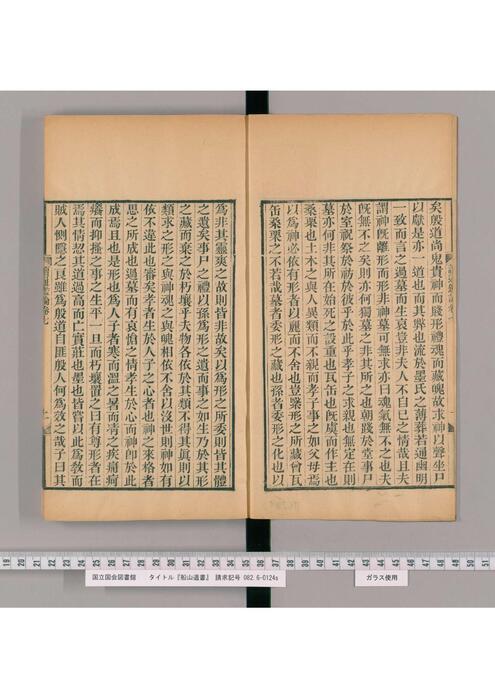 矣殷道尚鬼貴神而賤形禮魂而藏魄故求神以聲坐尸
以獻是亦一道也而其弊也流於墨氏之薄葬若通幽明
一致而言之過墓而生哀豈非夫人不自已之情哉且夫
謂神既離形而形非神墓可無求亦曰魂氣無不之也夫
既無不之矣則亦何獨墓之非其所之也朝踐於堂事尸
於室祝祭於祊於彼乎於此乎孝子之求親也無定在則
墓亦何非其所在始死之設重也瓦缶也既虞而作主也
桑栗也土木之與人異類而不親而孝子事之如父母焉
以為神必依有形者以麗而不舍也豈槷形之所藏曾瓦
缶桑栗之不若哉墓者委形之藏也孫者委形之化也以
為非其靈爽之故則皆非故矣以為形之所委則皆其體
之遺矣事尸之禮以孫為形之遺而事之如生乃於其形
之藏而棄之於朽壤乎夫物各依於其類不得其眞則以
類求之形之與神魂之與魄相依不舍以沒世則神如有
依不違此也審矣孝者生於人子之心者也神之來格者
思之所成也過墓而有哀愴之情孝生於心而神即於此
成焉且也是形也為人子者寒而溫之暑而凊之疾痛疴
癢而抑搔之事之生平一旦而朽壤置之曰有尊形者在
焉其情惎其道過高而亡實莊也墨也皆以此為教而
賊人惻隱之良雖為殷道自匪殷人何為效之哉子曰其
國立国会図書館 タイトル『船山遺書』 請求記号 082.6-0124s
ガラス使用